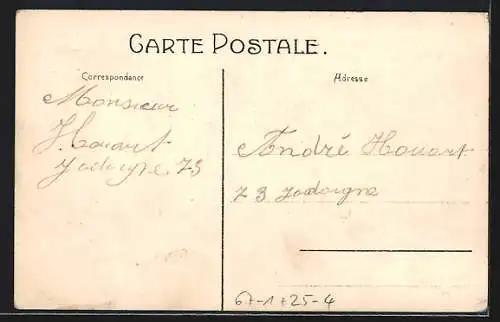 CARTE POSTALE.
Correspondance
Monsieur
Houart
Jodoigne 73
Adresse
André Houart
73 Jodoigne
67-1 725-4